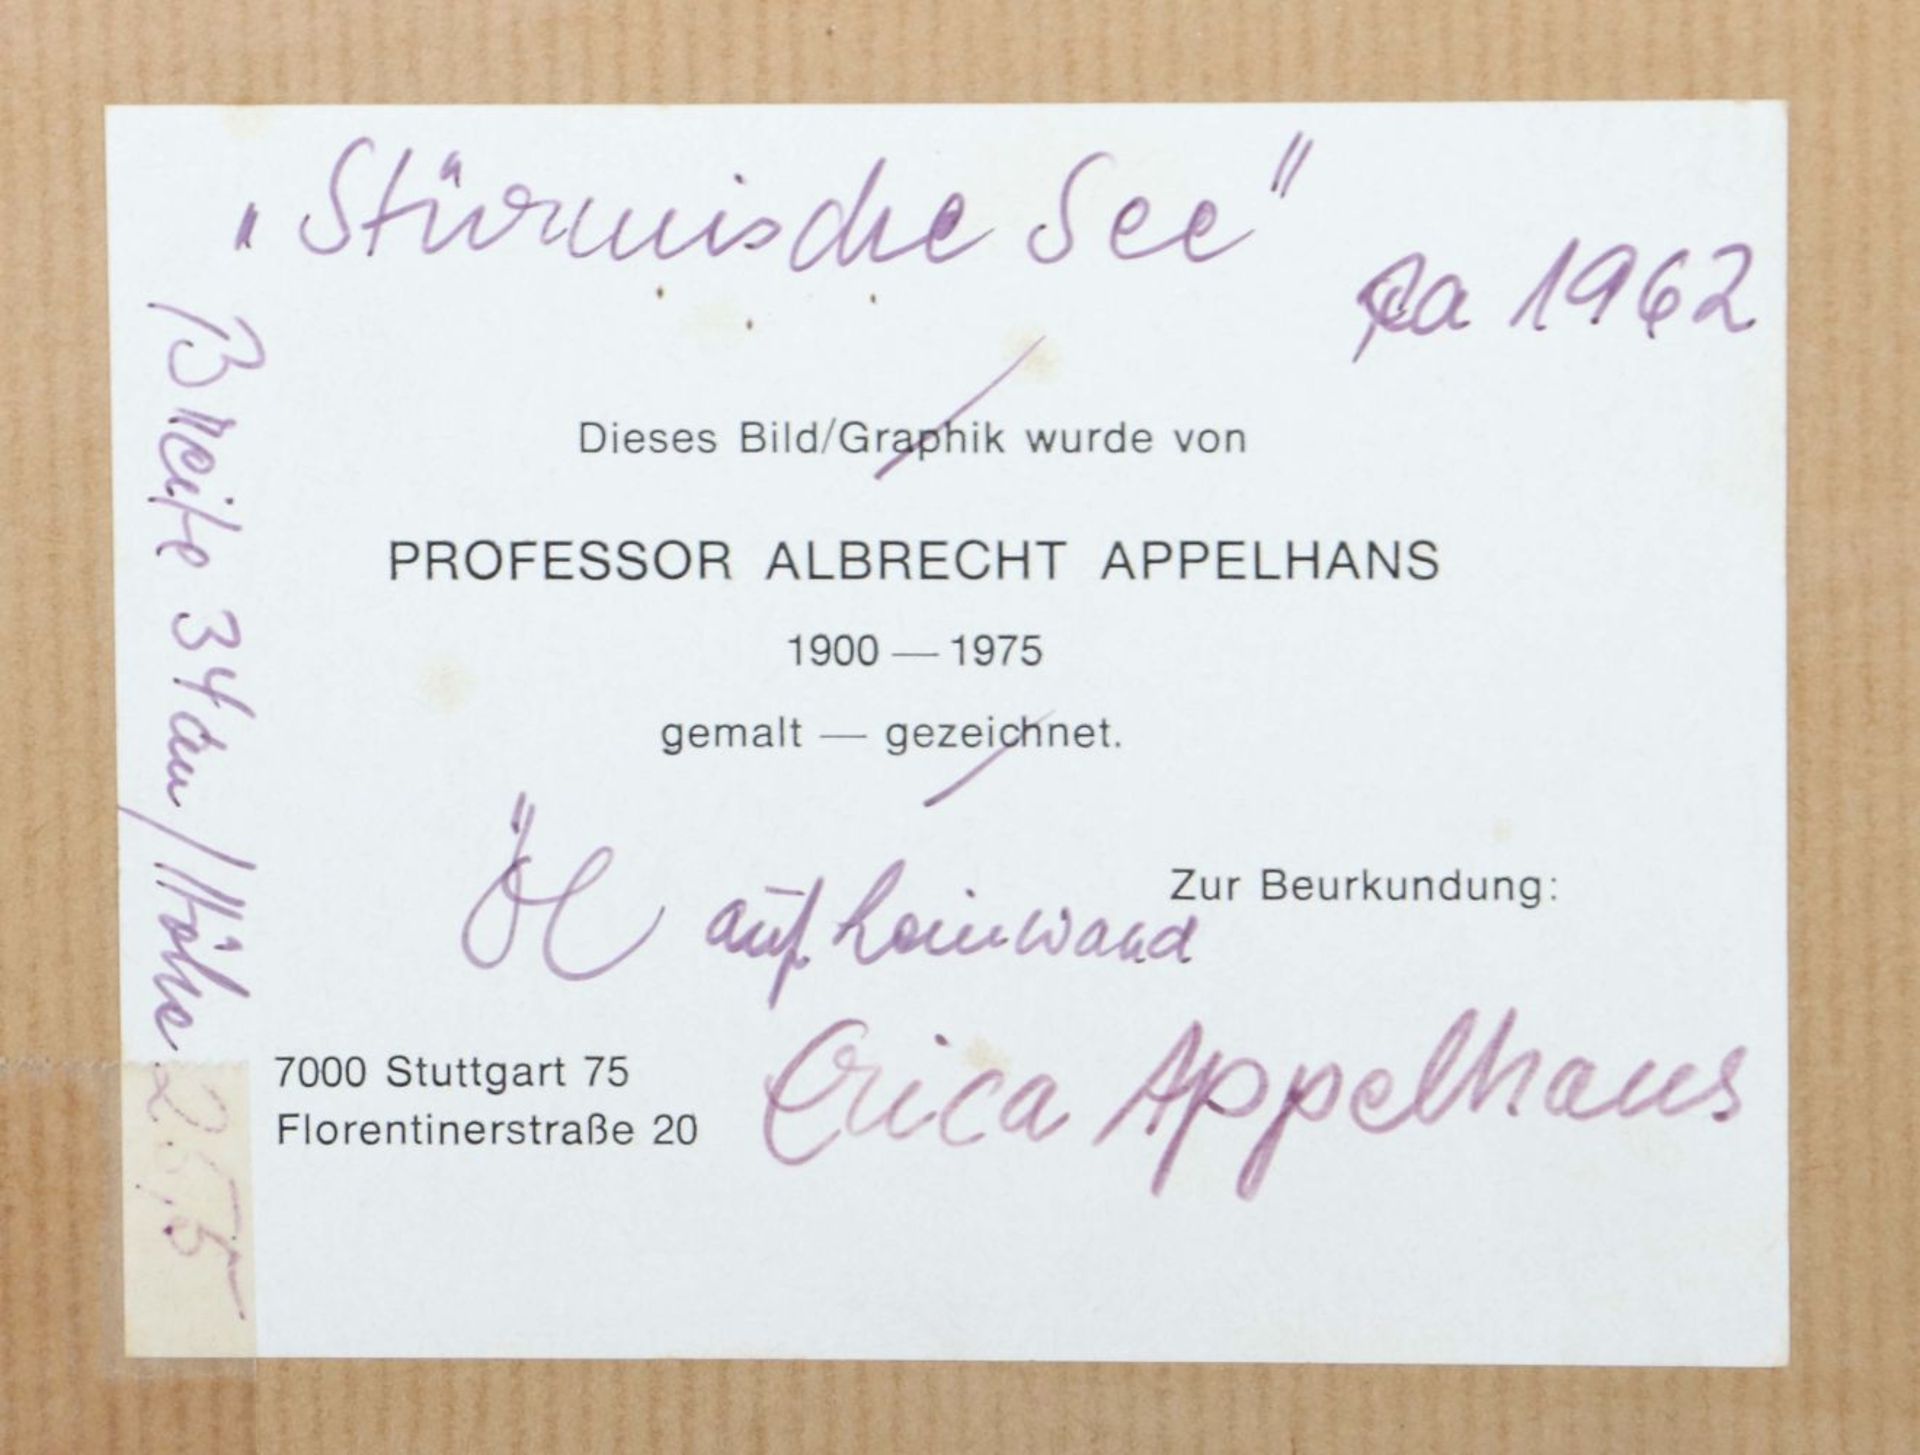 „Stürmische See"
ca 1962
Dieses Bild/Graphik wurde von
PROFESSOR ALBRECHT APPELHANS
1900 — 1975
gemalt — gezeichnet.
Öl auf Leinwand
Zur Beurkundung:
Erica Appelhans
7000 Stuttgart 75
Florentinerstraße 20
Breite 34 cm / Höhe 25,5